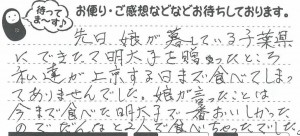 待ってま〜す♪
お便り・ご感想などなどお待ちしております。
先日娘が暮している千葉県
にできたて明太子を贈ったところ
私達が上京する日まで食べてしまっ
てありませんでした。娘が言ったことは
今まで食べた明太子で一番おいしかった
のでだんなと2人で食べちゃったでした